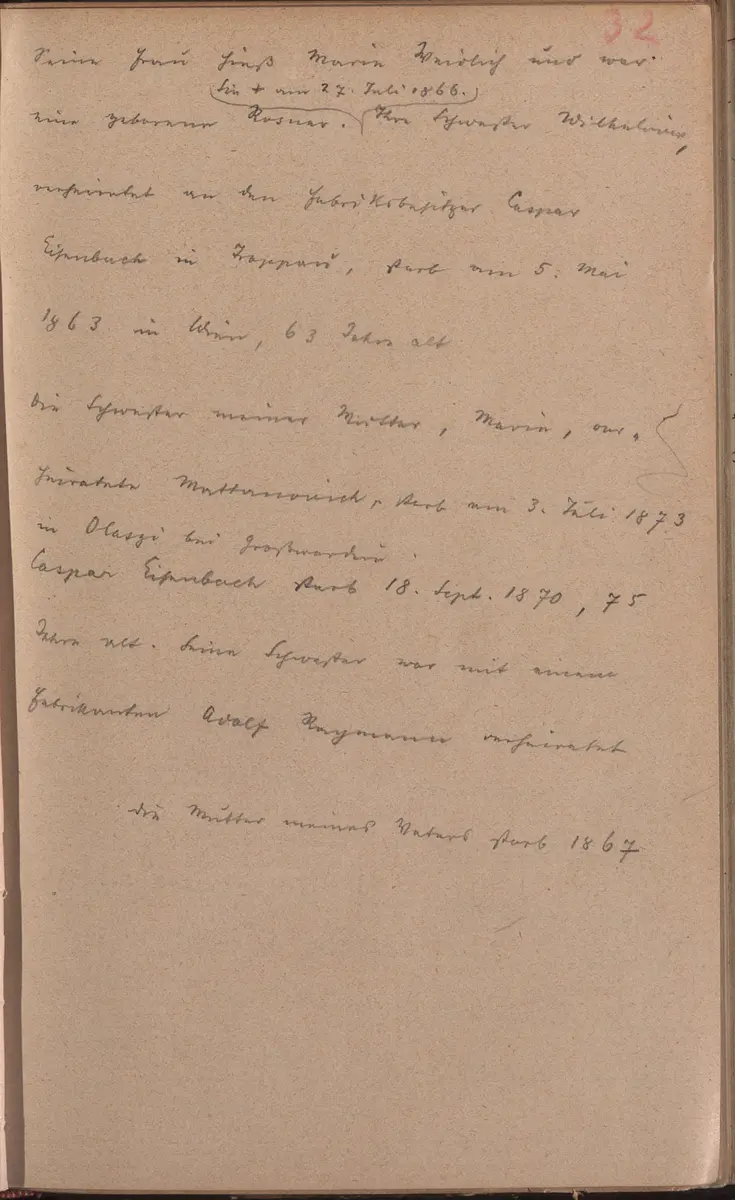 32
Seine Frau hieß Marie Weidlich und war
Sie + am 27. Juli 1866.
eine geborene Rosner. Ihre Schwester Wilhelmine,
verheiratet an den Fabriksbesitzer Caspar
Eisenbach in Troppau, starb am 5. Mai
1863 in Wien, 63 Jahre alt
Die Schwester meiner Mutter, Marie, ver-
heiratete Mattanovich, starb am 3. Juli 1873
in Olaszi bei Großwardein.
Caspar Eisenbach starb 18. Sept. 1870, 75
Jahre alt. Seine Schwester war mit einem
Fabrikanten Adolf Raymann verheiratet
die Mutter meines Vaters starb 1867